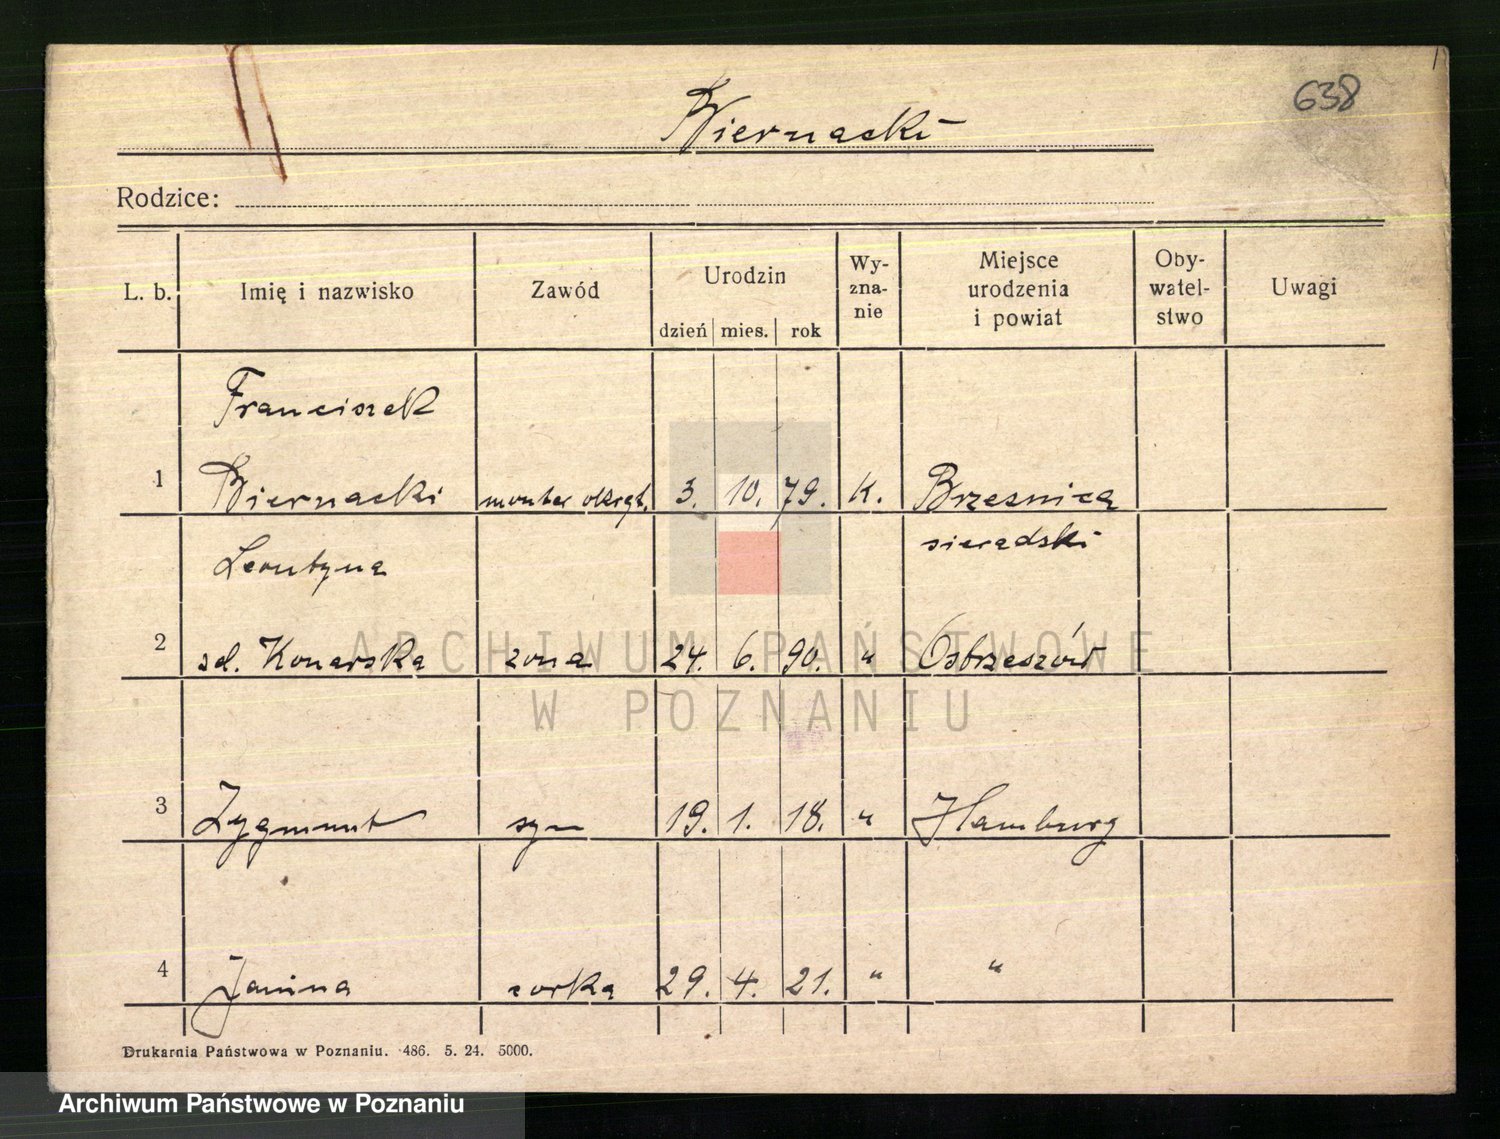 638
Biernacki
Rodzice:
L. b.
Imię i nazwisko
Zawód
Urodzin
dzień mies. rok
Wy-
zna-
nie
Miejsce
urodzenia
i powiat
Oby-
watel-
stwo
Uwagi
Franciszek
1 Biernacki monter okręt. 3. 10. 79. K. Brzesnica
sieradski
Leontyna
2 zd. Konarska żona 24. 6. 90. " Ostrzeszów
3 Zygmunt syn 19. 1. 18. " Hamburg
4 Janina corka 29. 4. 21. " "
Drukarnia Państwowa w Poznaniu. 486. 5. 24. 5000.
ARCHIWUM PAŃSTWOWE
W POZNANIU
Archiwum Państwowe w Poznaniu